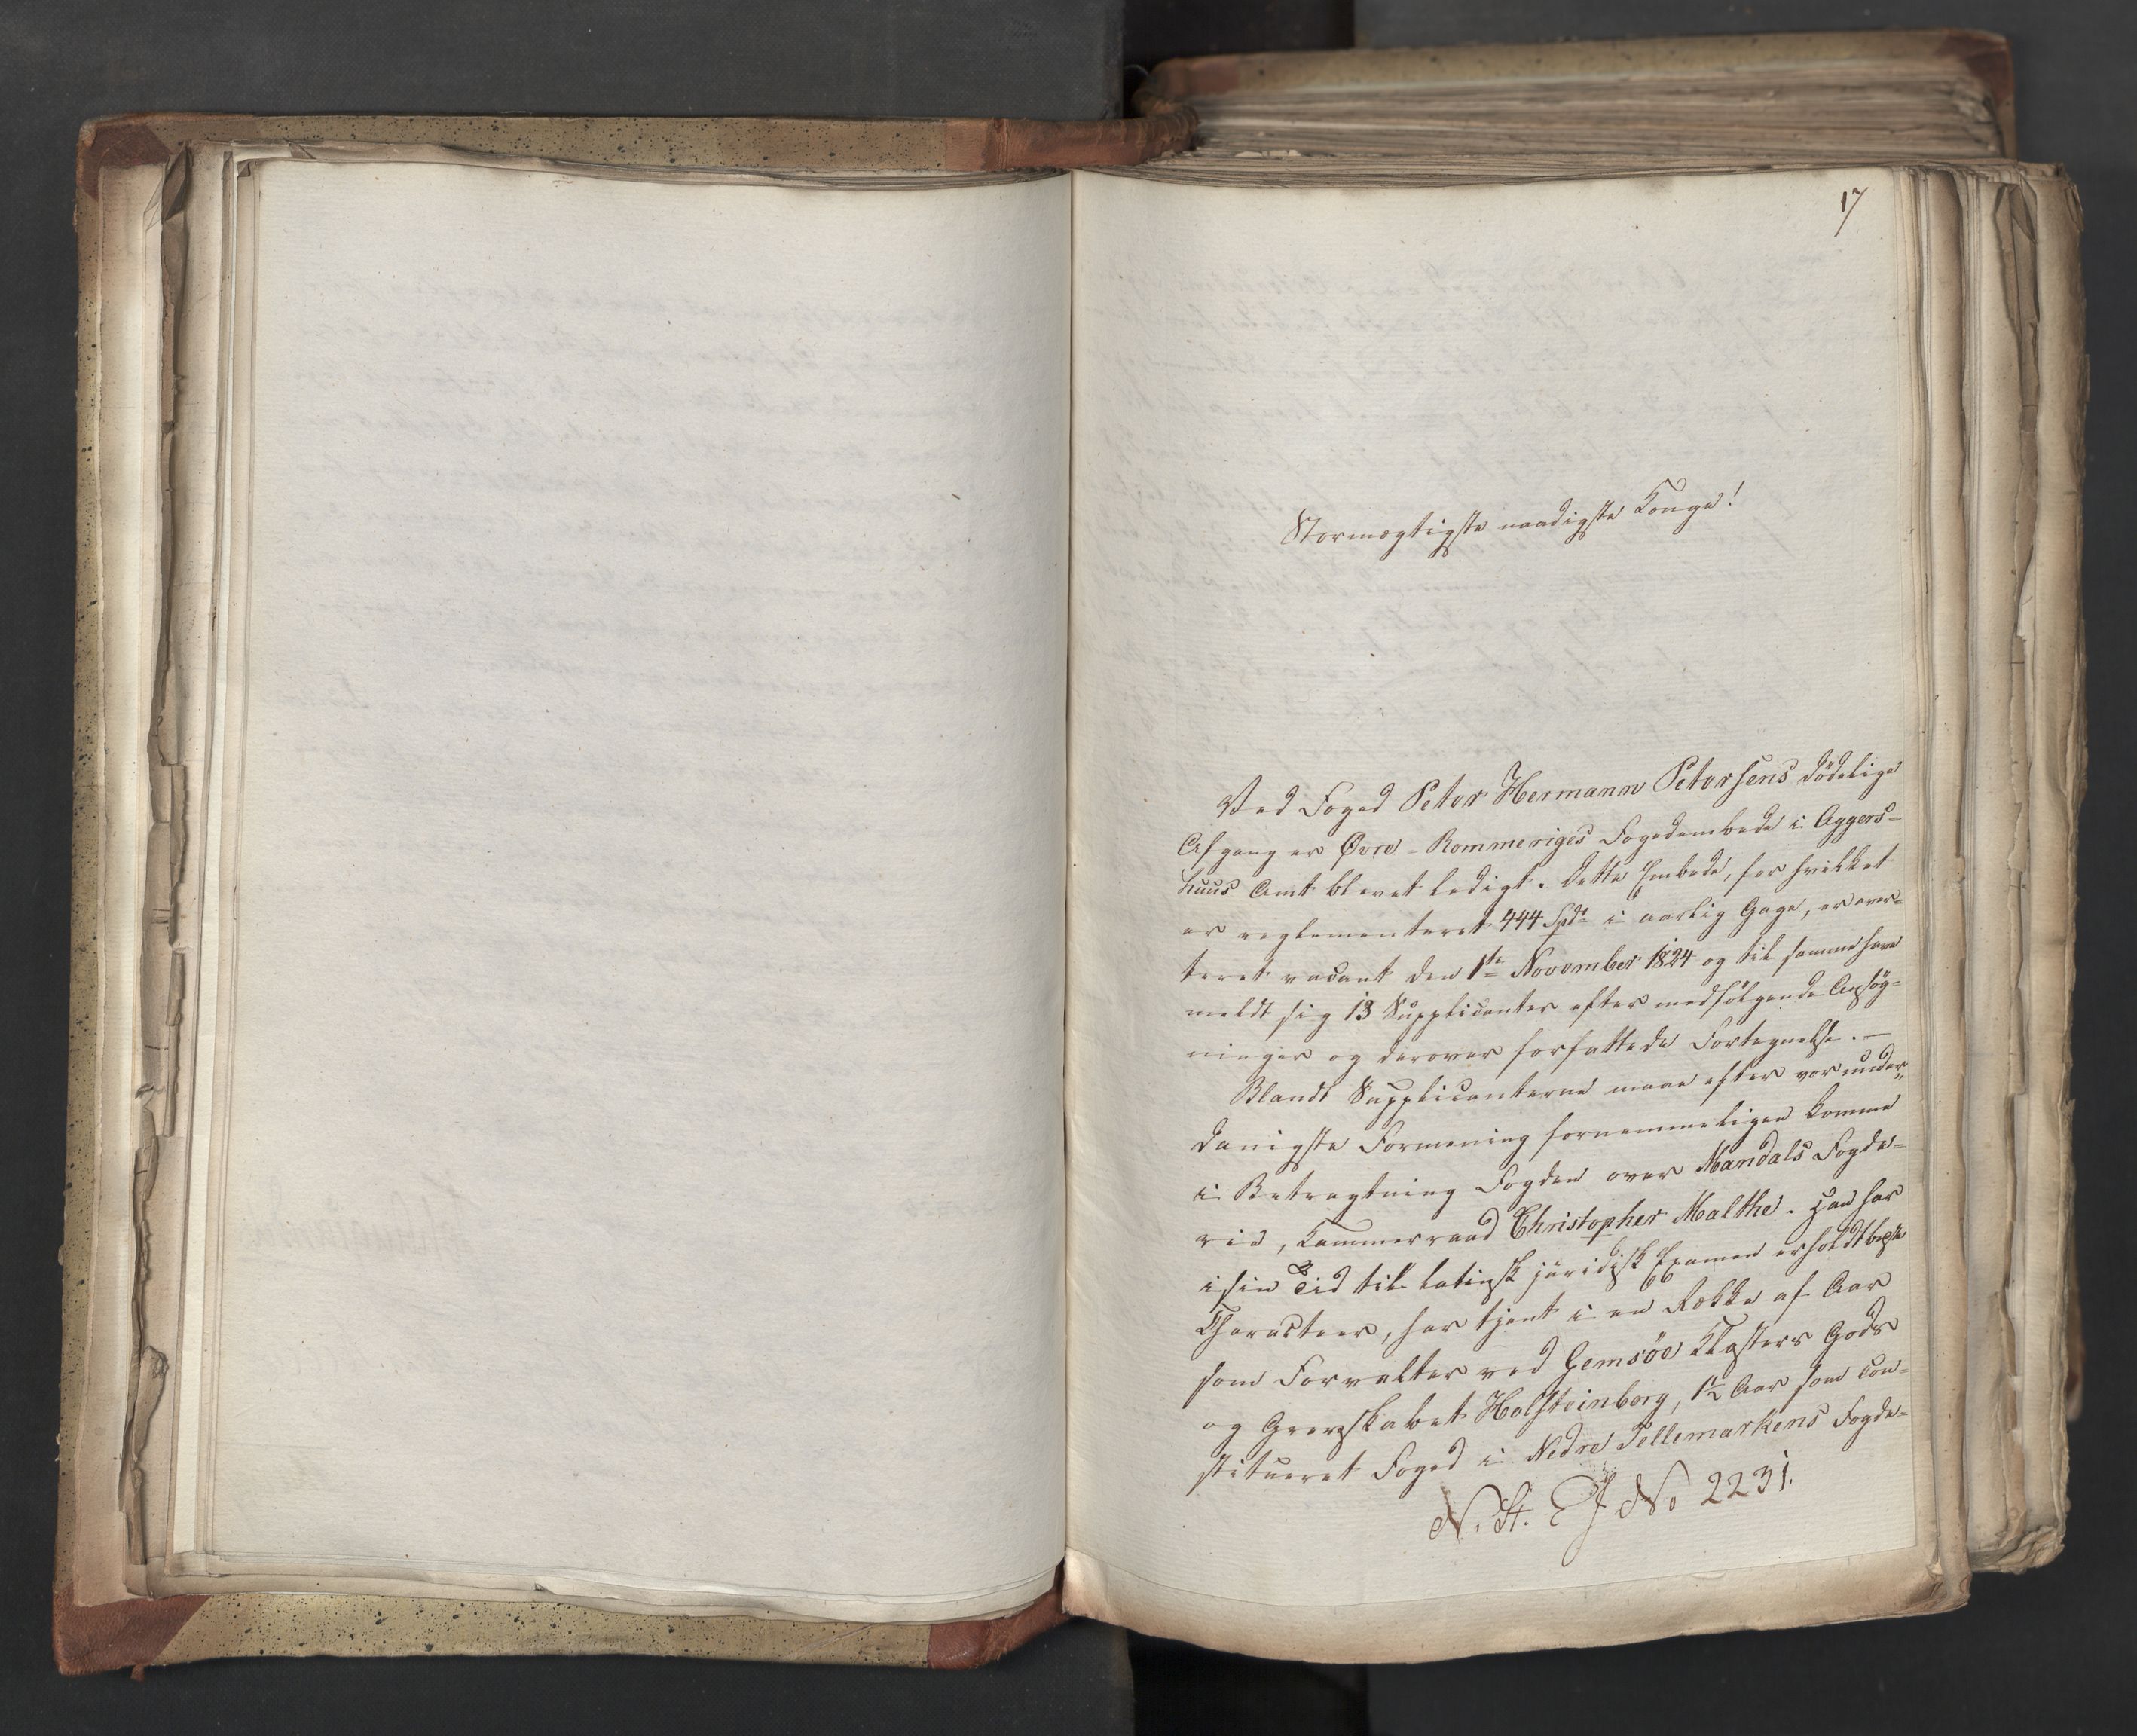 17
Stormægtigste naadigste Konge!
Ved Foged Peter Hermann Petersens dödelige
Afgang er Øvre-Rommeriges Fogedembede i Aggers-
huus Amt blevet ledigt. Dette Embede, for hvilket
er reglementeret 444 Spd. i aarlig Gage, er aver-
teret vacant den 1te November 1824 og til samme have
meldt sig 13 Supplicanter efter medfölgende Ansög-
ninger og derover forfattede Fortegnelse. —
Blandt Supplicanterne maae efter vor under-
danigste Formening fornemmeligen komme
i Betragtning Fogden over Mandals Fogde-
rie, Kammerraad Christopher Malthe. Han har
i sin Tid til latinsk juridisk Examen erholdt beste
Characteer, har tjent i en Række af Aar
som Forvalter ved Gemsöe Klosters Gods
og Grevskabet Holsteinborg, 1½ Aar som con-
stitueret Foged i Nedre Tellemarkens Fogde-
N. St. E J No 2231.